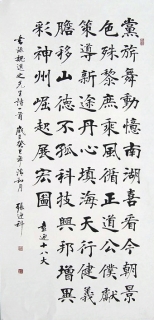 黨旗舞動憶南湖喜看今朝景
色殊黎庶乘風循正道公僕獻
策導心填海天行健義
膽移山德不孤科技興邦增異
彩神州崛起展宏圖
喜迎十八大
先生詩一首 歲在癸巳年清和月 張